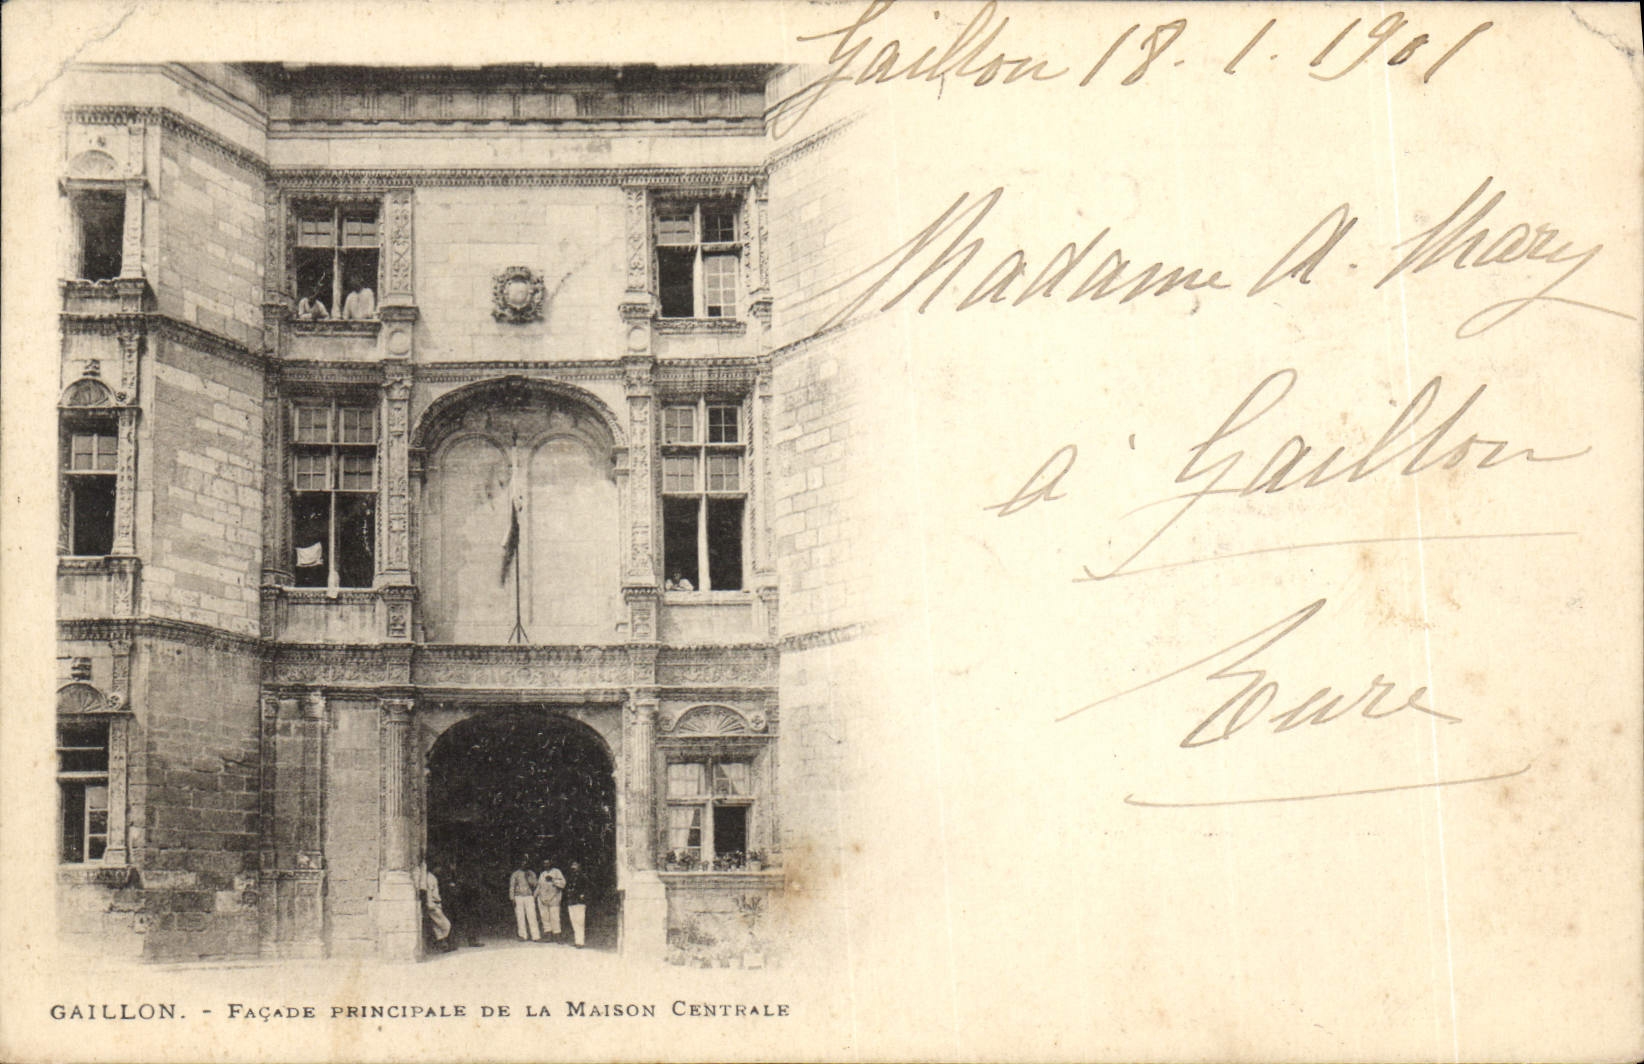 Gaillon 18. 1. 1901
Madame A. Mary
à Gaillon
Eure
GAILLON. - FAÇADE PRINCIPALE DE LA MAISON CENTRALE